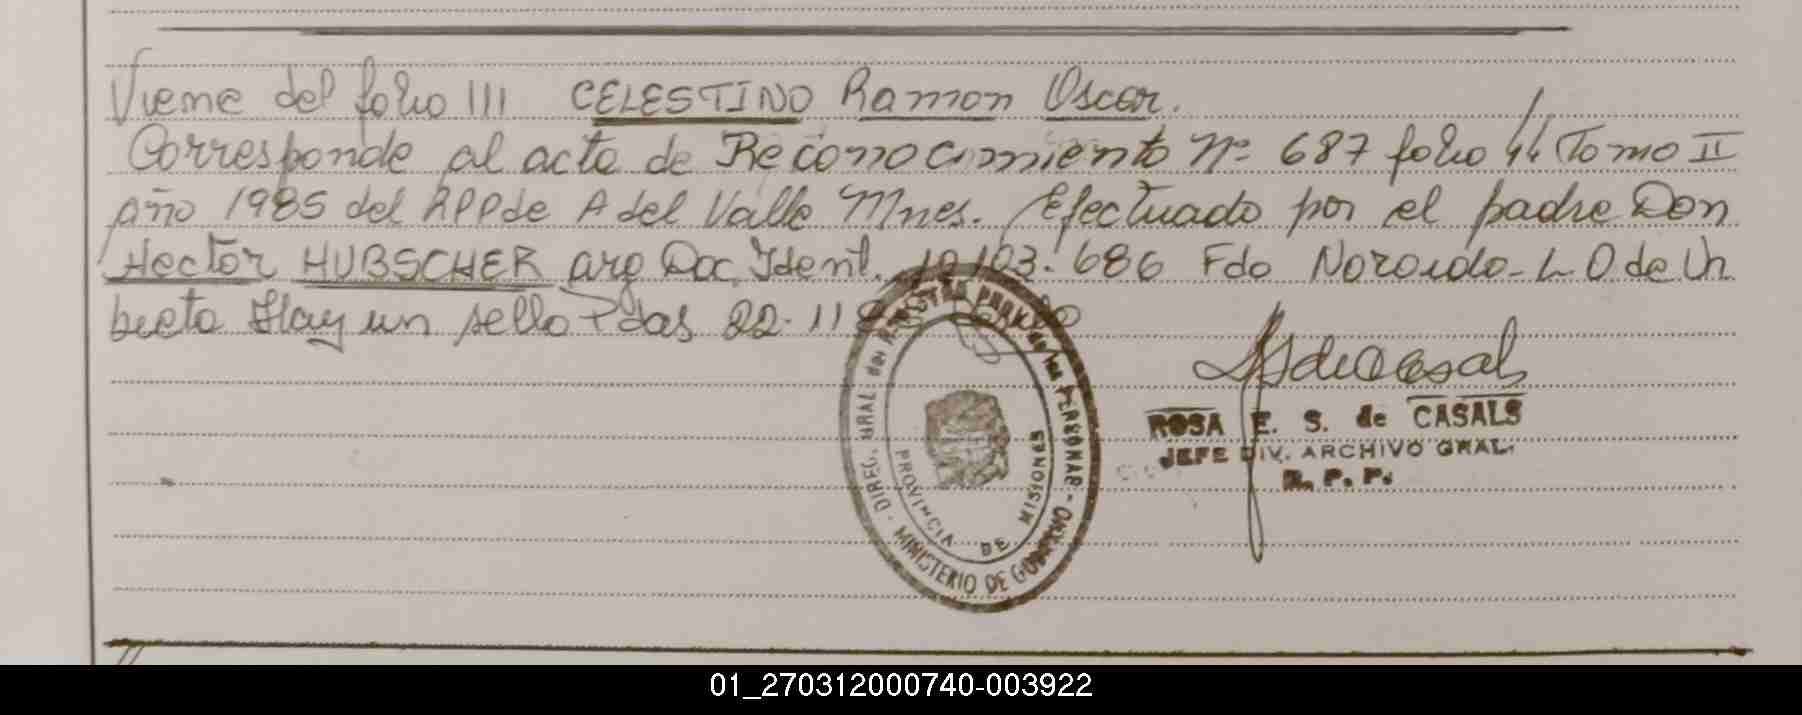 Viene del folio 111 CELESTINO Ramon Oscar.
Corresponde al acta de Reconocimiento Nº 687 folio 44 Tomo II
año 1985 del RPP de A del Valle Mnes. Efectuado por el padre Don
Hector HUBSCHER arg Doc. Ident. 10.103.686 Fdo Noroido - L O de Un
bieta Hay un sello Pdas 22.11
DIREC. GRAL del REGISTRO PROV. de las PERSONAS - MINISTERIO DE GOBIERNO -
PROVINCIA DE MISIONES
ROSA E. S. de CASALS
JEFE DIV. ARCHIVO GRAL.
R. P. P.
01_270312000740-003922